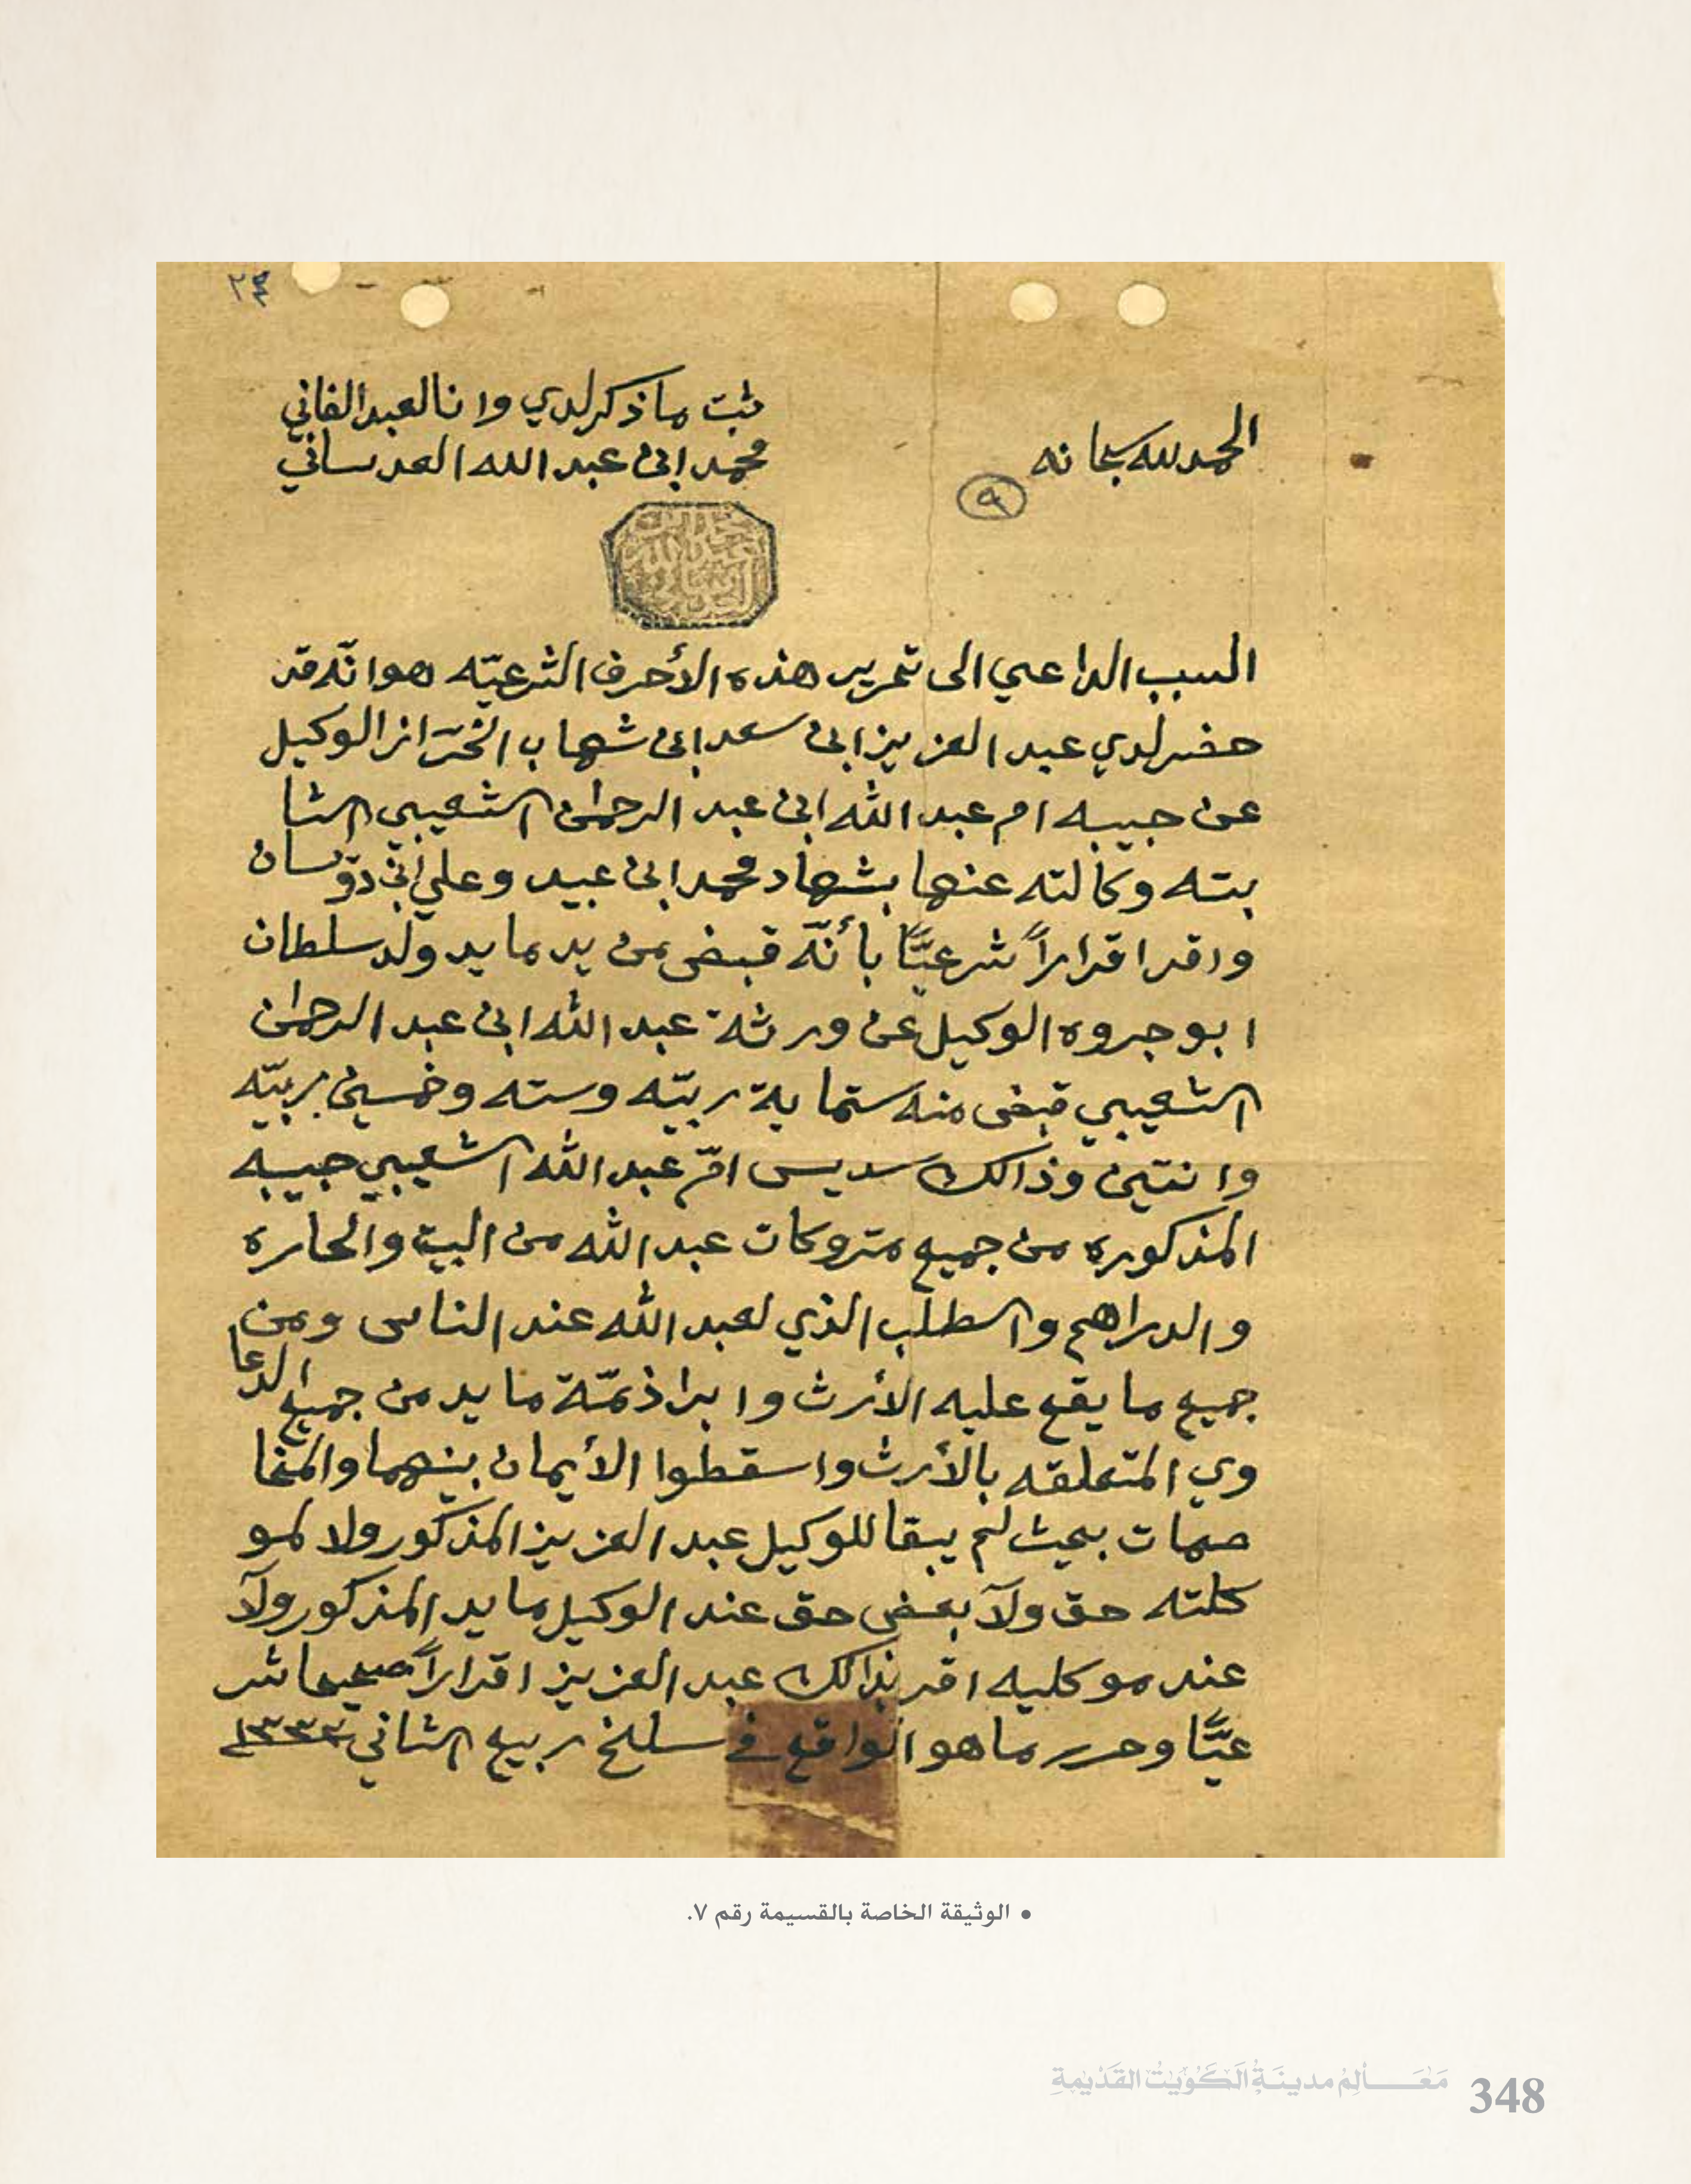 ٢٤
الحمد لله سبحانه
٩
ثبت ما ذكر لدي وانا العبد الفاني
محمد ابن عبد الله العدساني
محمد ابن عبد الله العدساني
السبب الداعي الى تحرير هذه الأحرف الشرعيّه هو انّه قد
حضر لدي عبد العزيز ابن سعد ابن شهاب الخرّاز الوكيل
عن حبيبه ام عبد الله ابن عبد الرحمن الشعيبي الثا
بته وكالته عنها بشهاد محمد ابن عبيد وعلي ابن دوّسان
واقر اقراراً شرعيًّا بأنّه قبض من يد مايد ولد سلطان
ابو جروه الوكيل عن ورثة عبد الله ابن عبد الرحمن
الشعيبي قبض منه ستماية ربيّه وسته وخمسين ربيّه
وانتين وذالك سديس امّ عبد الله الشعيبي حبيبه
المذكوره من جميع متروكات عبد الله من البيت والحاره
والدراهم والطلب الذي لعبد الله عند الناس ومن
جميع ما يقع عليه الأرث وابرا ذمّة مايد من جميع الدعا
وي المتعلقه بالأرث واسقطوا الأيمان بينهما والمخا
صمات بحيث لم يبقا للوكيل عبد العزيز المذكور ولا لمو
كلته حق ولآ بعض حق عند الوكيل مايد المذكور ولآ
عند موكليه اقر بذالك عبد العزيز اقراراً صحيحا شر
عيًّا وحرر ما هو الواقع في سلخ ربيع الثاني ١٣٣٣
• الوثيقة الخاصة بالقسيمة رقم ٧.
مَعَالِمُ مدينَةِ الكُوَيْتْ القَدْيمةِ 348